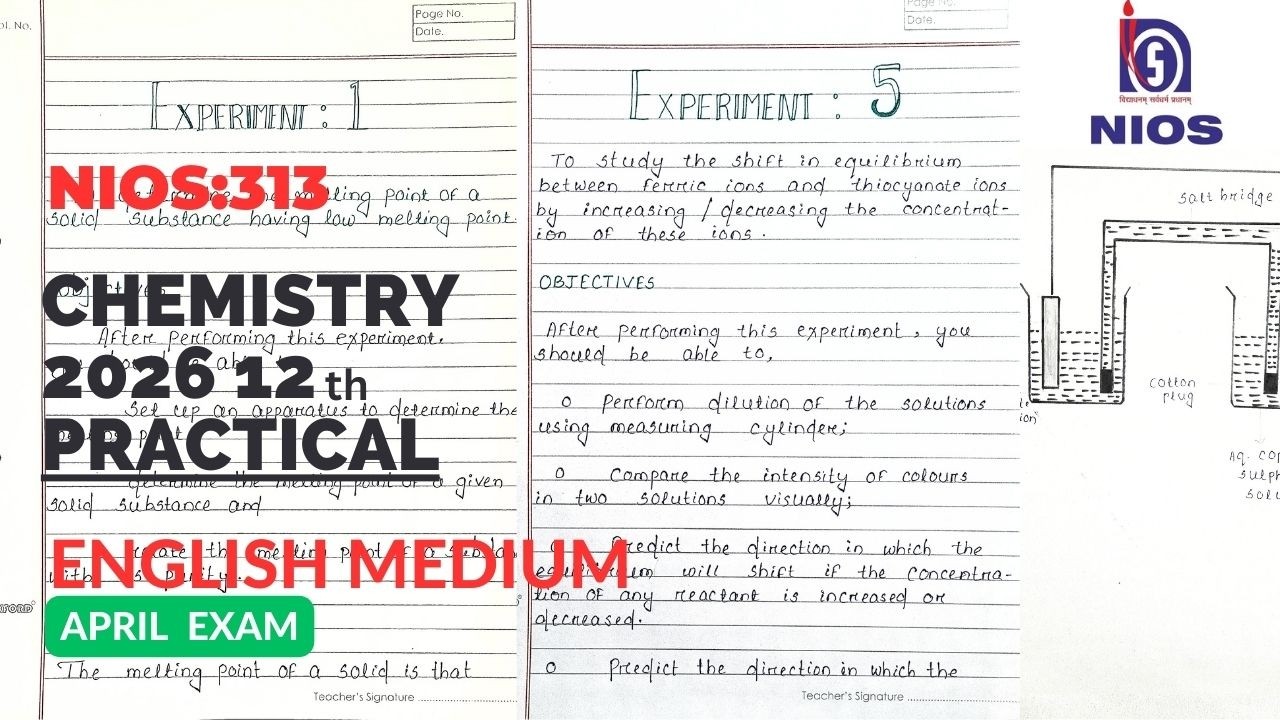 ol. No.
Page No.
Date.
EXPERIMENT : 1
NIOS:313
melting point of a
solid substance having low melting point.
CHEMISTRY
After performing this experiment,
2026 12 th
Set up an apparatus to determine the
PRACTICAL
determine the melting point of a given
solid substance and
ENGLISH MEDIUM
APRIL EXAM
The melting point of a solid is that
Teacher's Signature
Page No.
Date.
EXPERIMENT : 5
To study the shift in equilibrium
between ferric ions and thiocyanate ions
by increasing / decreasing the concentrat-
ion of these ions.
OBJECTIVES
After performing this experiment, you
should be able to,
o Perform dilution of the solutions
using measuring cylinder;
o Compare the intensity of colours
in two solutions visually;
Predict the direction in which the
will shift if the concentra-
tion of any reactant is increased or
decreased.
o Predict the direction in which the
Teacher's Signature
विद्याधनम् सर्वधनं प्रधानम्
NIOS
salt bridge
cotton
plug
Aq. cop
sulph
solu